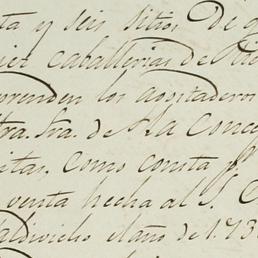 ta y seis sitios de g
iez caballerias de tie
prenden los agostaderos
tra. Sra. de la Conce
itas, como consta p.
venta hecha al S.
aldivielso el año de 173